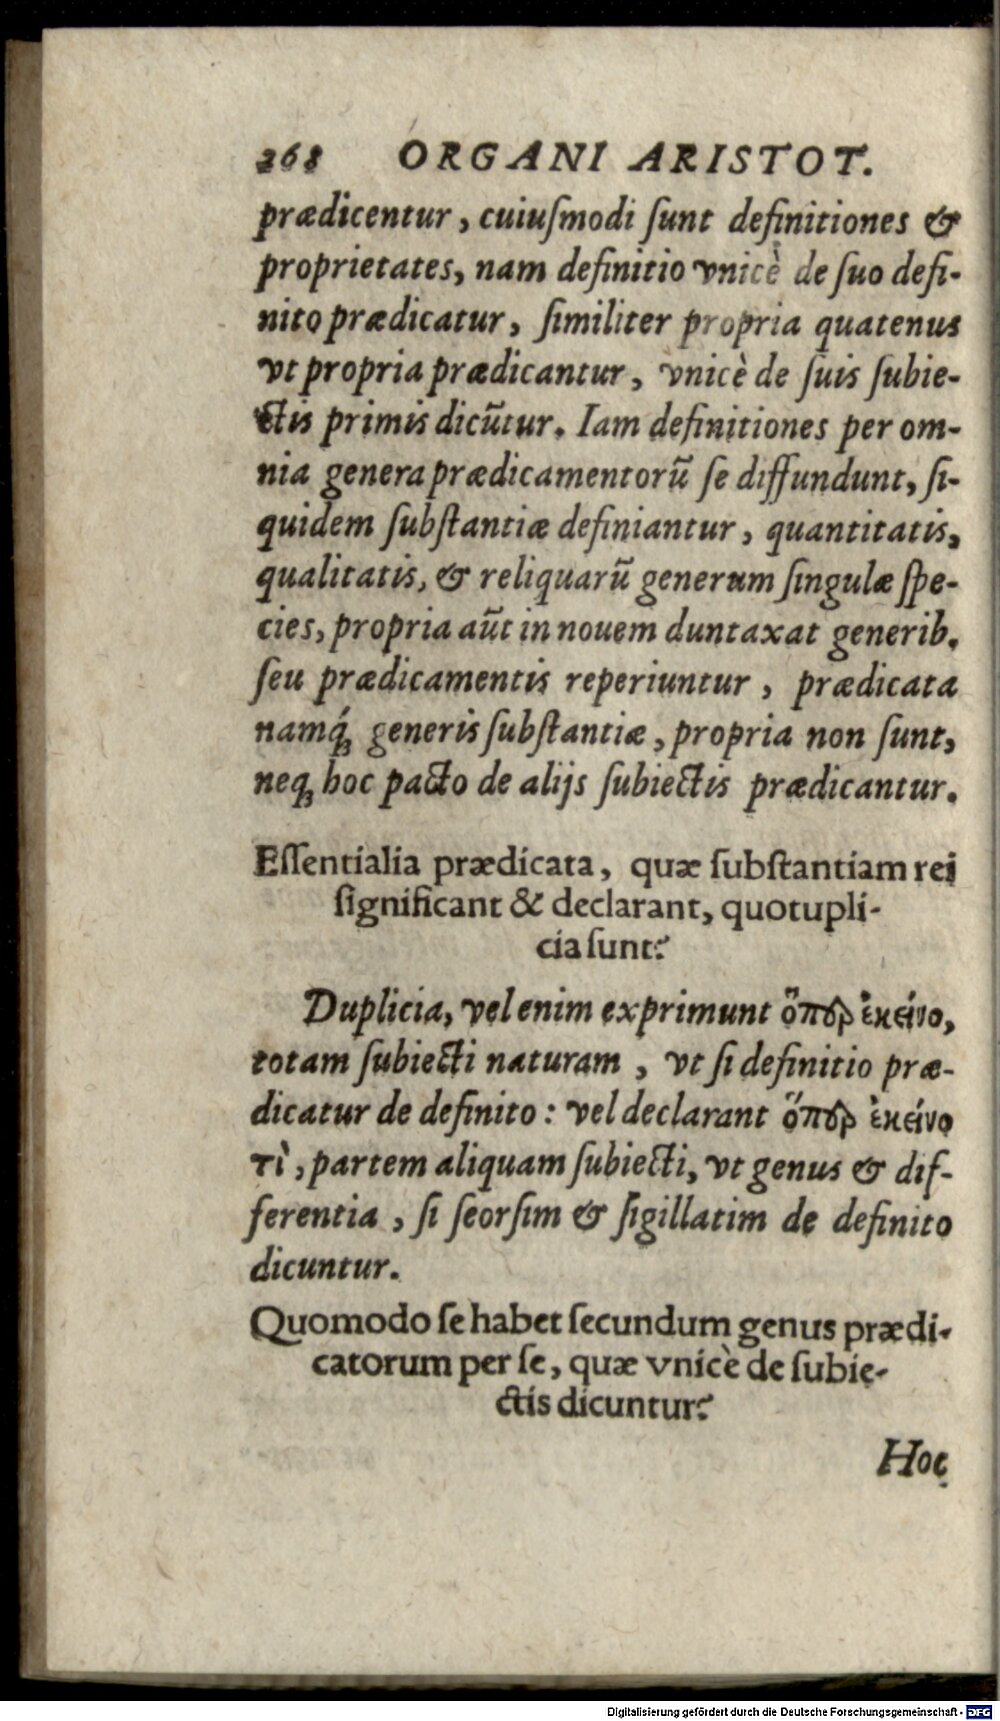 268 ORGANI ARISTOT.
prædicentur, cuiuſmodi ſunt definitiones &
proprietates, nam definitio vnicè de ſuo defi-
nito prædicatur, ſimiliter propria quatenus
vt propria prædicantur, vnicè de ſuis ſubie-
ctis primis dicūtur. Iam definitiones per om-
nia genera prædicamentorū ſe diffundunt, ſi-
quidem ſubſtantiæ definiantur, quantitatis,
qualitatis, & reliquarū generum ſingulæ ſpe-
cies, propria aūt in nouem duntaxat generib.
ſeu prædicamentis reperiuntur, prædicata
namq́; generis ſubſtantiæ, propria non ſunt,
neq; hoc pacto de alijs ſubiectis prædicantur.
Eſſentialia prædicata, quæ ſubſtantiam rei
ſignificant & declarant, quotupli-
cia ſunt?
Duplicia, vel enim exprimunt ὅπερ ἐκείνο,
totam ſubiecti naturam, vt ſi definitio præ-
dicatur de definito: vel declarant ὅπερ ἐκείνο
τὶ, partem aliquam ſubiecti, vt genus & dif-
ferentia, ſi ſeorſim & ſigillatim de definito
dicuntur.
Quomodo ſe habet ſecundum genus prædi-
catorum per ſe, quæ vnicè de ſubie-
ctis dicuntur?
Hoc
Digitalisierung gefördert durch die Deutsche Forschungsgemeinschaft - DFG